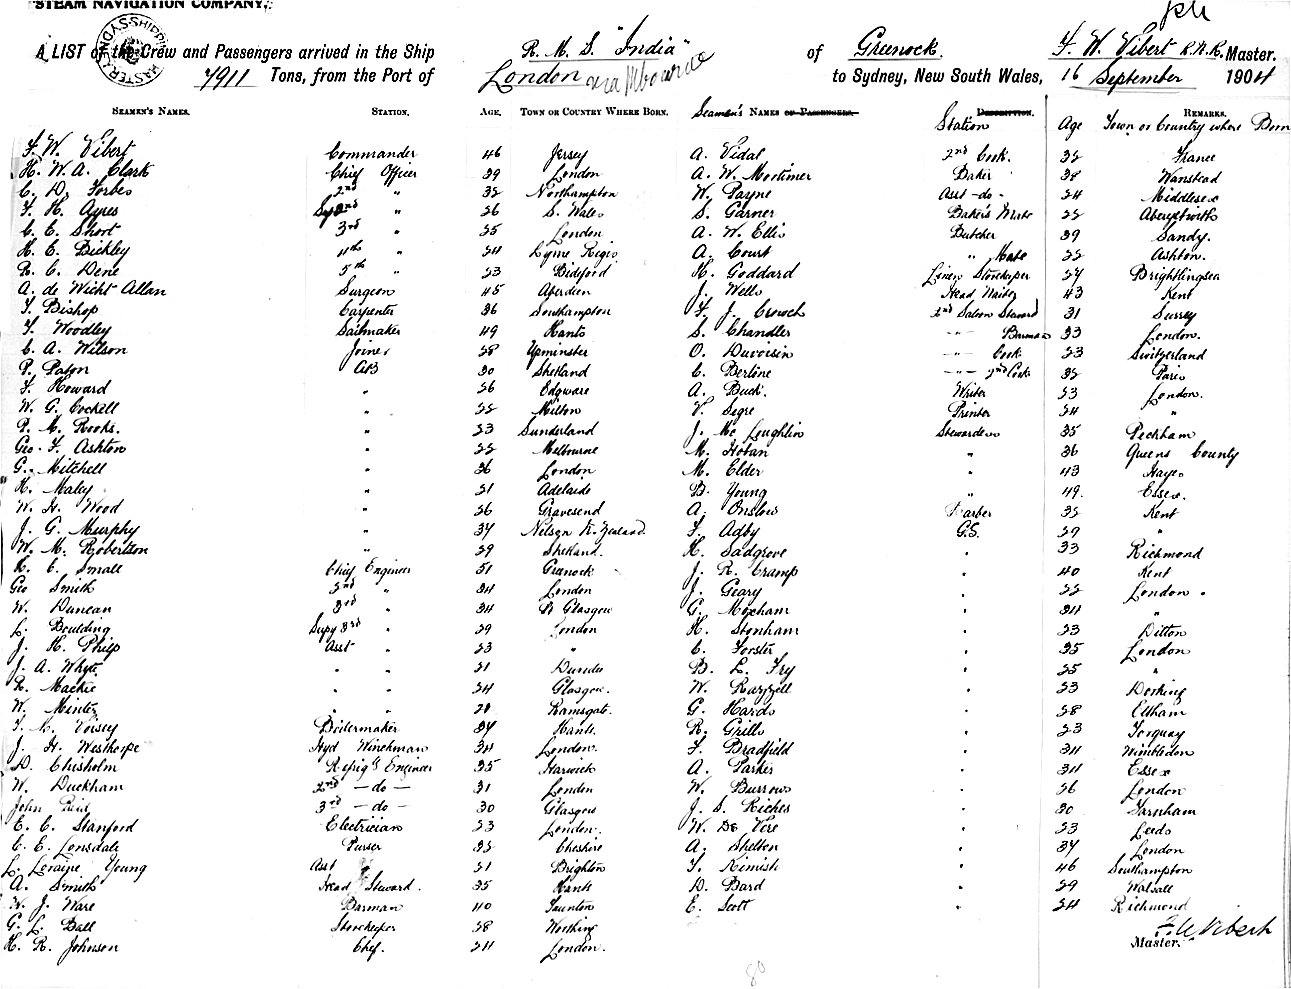 STEAM NAVIGATION COMPANY.
A LIST of the Crew and Passengers arrived in the Ship R. M. S. "India" of Greenock. F. W. Vibert R.N.R. Master.
7911 Tons, from the Port of London via Mbourne to Sydney, New South Wales, 16 September 1904
SEAMEN'S NAMES. STATION. AGE. TOWN OR COUNTRY WHERE BORN. Seamen's NAMES OF PASSENGERS. Station DESCRIPTION. Age REMARKS. Town or Country where Born
F. W. Vibert Commander 46 Jersey A. Vidal 2nd Cook. 32 France
H. W. A. Clark Chief Officer 39 London A. W. Mortimer Baker 38 Wanstead
C. D. Forbes 2nd " 32 Northampton W. Payne Asst -do- 24 Middlesex
F. H. Ayres 2nd " 26 S. Wales S. Garner Baker's Mate 22 Aberystwith
C. E. Short 3rd " 25 London A. W. Ellis Butcher 39 Sandy.
H. E. Bickley 4th " 24 Lyme Regis A. Court " Mate 22 Ashton.
R. C. Dene 5th " 23 Bideford H. Goddard Linen Storekeeper 27 Brightlingsea
A. de Wicht Allan Surgeon 45 Aberdeen J. Wells Head Waiter 43 Kent
T. Bishop Carpenter 36 Southampton F. J. Crouch 2nd Saloon Steward 31 Surrey
F. Woodley Sailmaker 49 Hants S. Chandler -"- Barman 33 London.
C. A. Wilson Joiner 28 Upminster O. Duvoisin -"- Cook 23 Switzerland
P. Paton AB 30 Shetland C. Berline -"- 2nd Cook 32 Paris
F. Howard " 26 Edgware A. Buck. Writer 23 London.
W. G. Cockell " 22 Milton V. Segre Printer 24 "
P. M. Rooks. " 23 Sunderland J. Mc Loughlin Stewardess 35 Peckham
Geo. F. Ashton " 22 Melbourne M. Hoban " 36 Queens County
G. Mitchell " 36 London M. Elder " 43 Hayes
H. Maley " 21 Adelaide B. Young " 49. Essex.
W. H. Wood " 26 Gravesend A. Onslow Barber 32 Kent
J. G. Murphy " 37 Nelson N. Zealand. F. Adby G.S. 29 "
W. M. Robertson " 29 Shetland. H. Sadgrove " 33 Richmond
R. C. Small Chief Engineer 51 Greenock J. R. Cramp " 40 Kent
Geo Smith 2nd " 34 London J. Geary " 22 London.
W. Duncan 3rd " 34 N Glasgow G. Moxham " 34 "
L. Boulding Supy 3rd " 29 London H. Stonham " 23 Ditton
J. H. Philp Asst " 23 " C. Forster " 35 London
J. A. Whyte " " 21 Dundee B. L. Fry " 25 "
R. Mackie " " 24 Glasgow. W. Razzell " 23 Dorking
W. Minter " " 24 Ramsgate. G. Hards " 28 Eltham
Voisey Boilermaker 37 Hants R. Grills " 23 Torquay
J. H. Westhorpe Hyd Winchman 34 London. F. Bradfield " 34 Wimbledon
D. Chisholm Refrig'g Engineer 35 Harwich A. Parker " 34 Essex
W. Duckham 2nd - do - 31 London W. Burrows " 26 London
John Reid 3rd - do - 30 Glasgow J. S. Riches " 30 Farnham
E. C. Stanford Electrician 23 London. W. De Vere " 23 Leeds
C. E. Lonsdale Purser 32 Cheshire A. Shelton " 37 London
L. Loraine Young Asst 21 Brighton T. Kimish " 46 Southampton
A. Smith Head Steward. 35 Hants D. Bard " 29 Walsall
W. J. Ware Barman 40 Taunton E. Scott " 24 Richmond
G. L. Ball Storekeeper 28 Worthing
H. R. Johnson Chef. 24 London.
F. W. Vibert
Master.
80